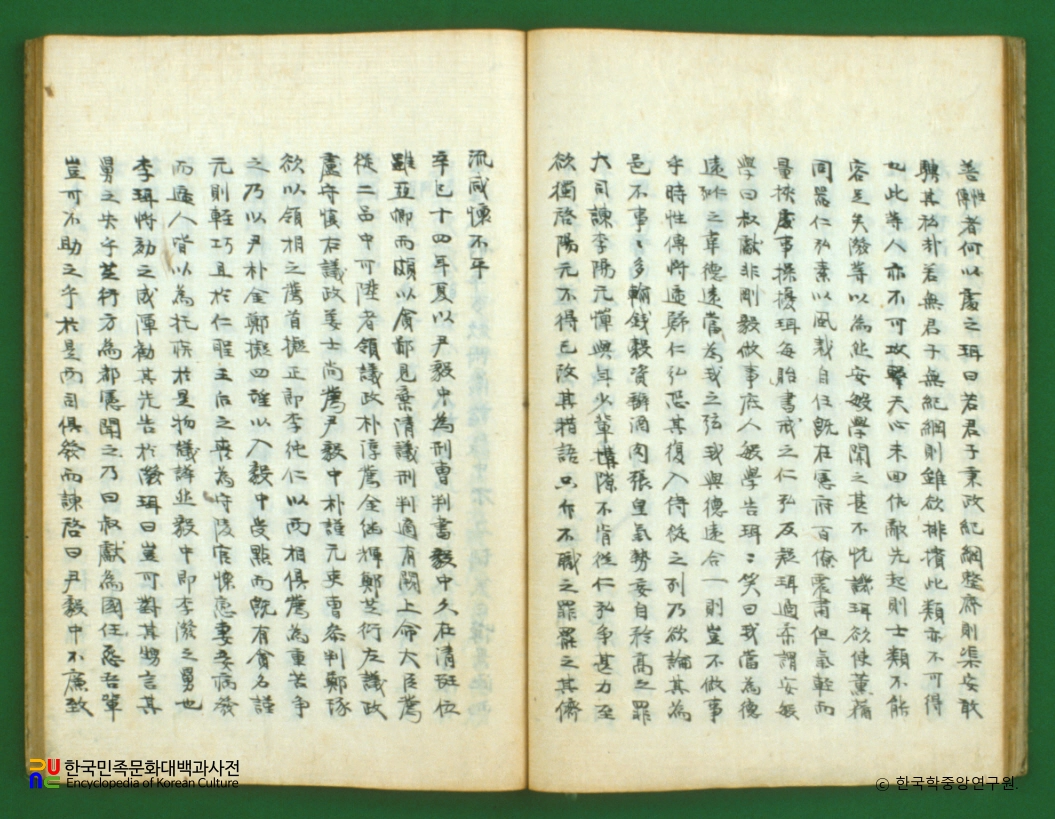 善性傳者何以處之珥曰若君子秉政紀綱整齊則渠安敢
騁其私朴若無君子無紀綱則雖欲排擯此類亦不可得
也此等人亦不可攻擊天心未回仇敵先起則士類不能
容足矣潑等以為然安敏學聞之甚不忱譏珥欲使薰蕕
同器仁弘素以風裁自任旣在憲府百僚震肅但氣輕而
量狹處事操擾珥每貽書戒之仁弘反超珥適柔謂安敏
學曰叔獻非剛毅做事底人敏學告珥珥笑曰我當為德
遠弦之韋德遠當為我之弦我與德遠合一則豈不做事
乎時性傳將遞歸仁弘恐其復入侍從之列乃欲論其為
邑不事事多輸錢穀資辦酒肉張皇氣勢妄自矜高之罪
大司諫李陽元憚與年少輩搆隙不肯從仁弘爭甚力至
欲獨啓陽元不得已改其措語只斥不職之罪罷之其儕
流咸懷不平
辛巳十四年夏以尹毅中為刑曹判書毅中久在清班位
雖亞卿而頗以貪鄙見棄清議刑判適有闕上命大臣薦
從二品中可陞者領議政朴淳薦金繼輝鄭芝衍左議政
盧守愼右議政姜士尚薦尹毅中朴謹元吏曹參判鄭琢
欲以領相之薦首擬正郎李純仁以兩相俱薦為重苦爭
之乃以尹朴金鄭擬四望以入毅中受點而旣有貪名謹
元則輕巧且於仁聖王后之喪為守陵官慄患妻妾病發
而遞人皆以為托疾於是物議譁然毅中即李潑之舅也
李珥將劾之或渾勸其先告於潑珥曰豈可對其甥言其
舅之失乎芝衍方為都憲聞之乃曰叔獻為國任怨吾輩
豈可不助之乎於是兩司俱發而諫啓曰尹毅中不廉致
한국민족문화대백과사전
Encyclopedia of Korean Culture
© 한국학중앙연구원.